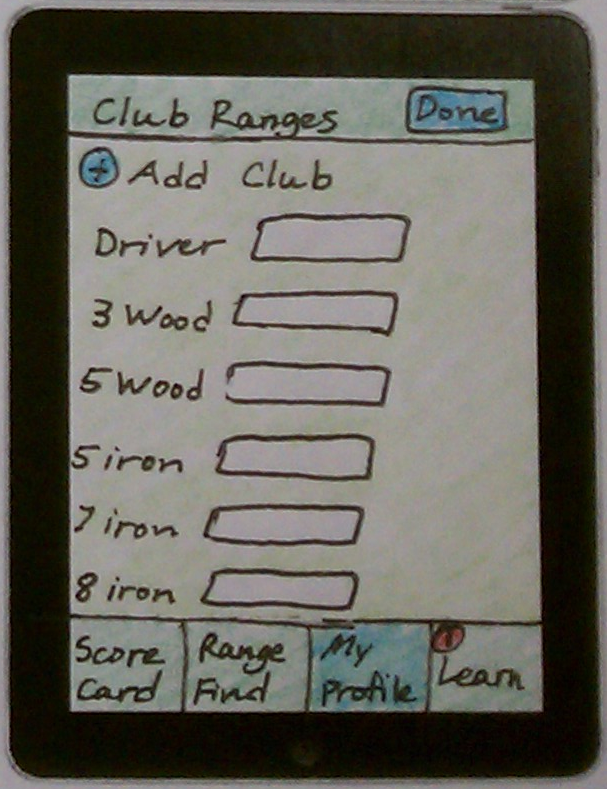 Club Ranges Done
+ Add Club
Driver
3 Wood
5 Wood
5 iron
7 iron
8 iron
Score Card
Range Find
My Profile
1
Learn